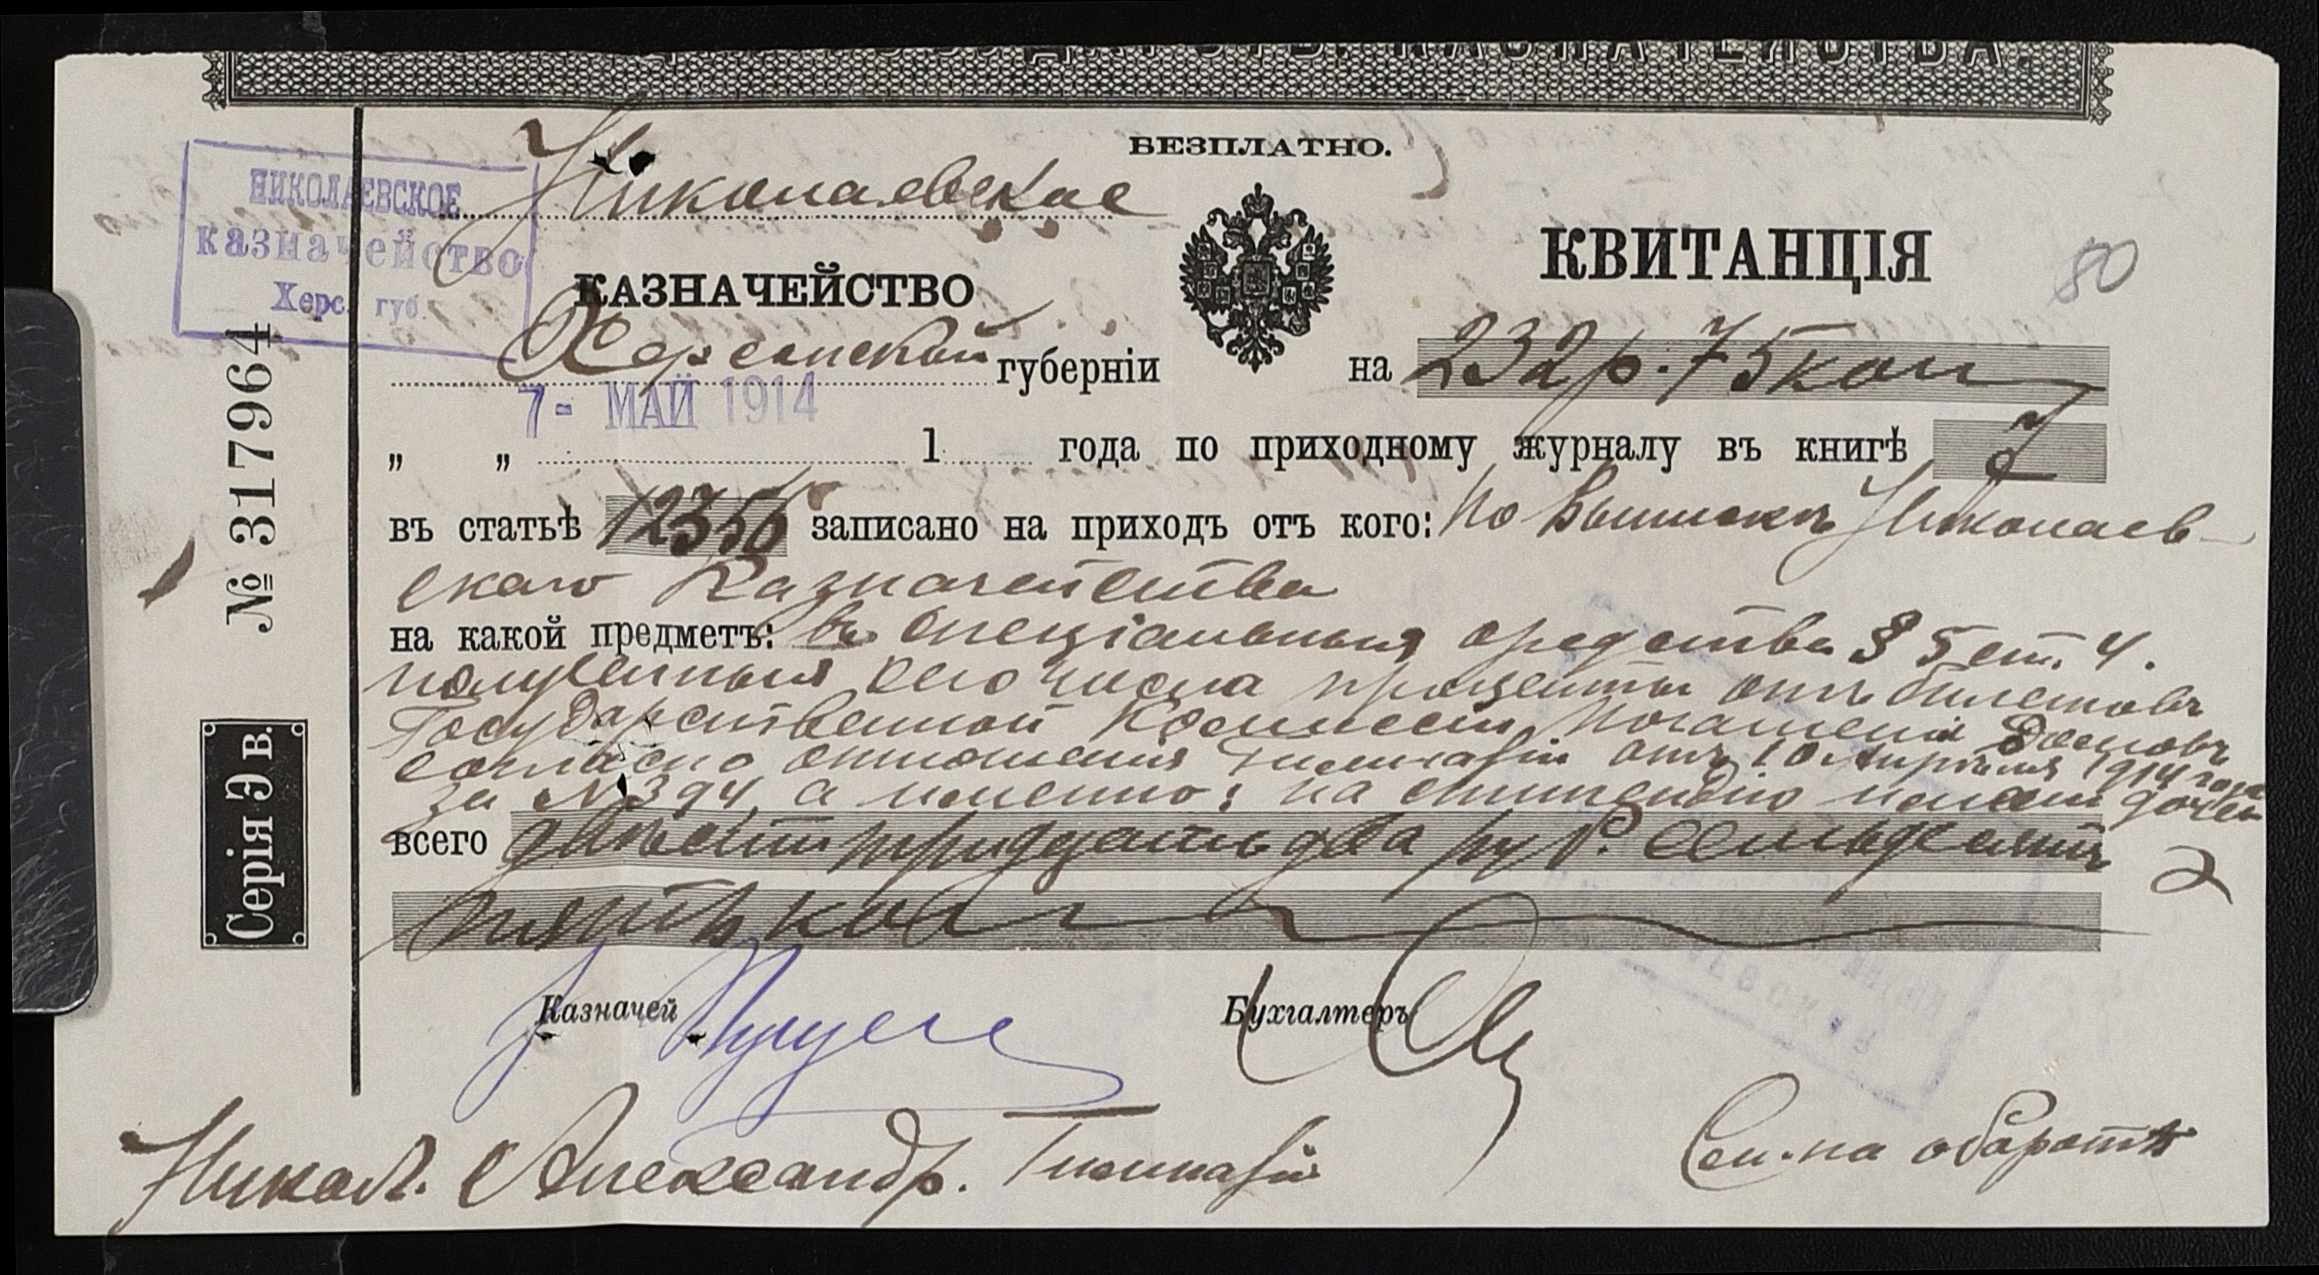 БЕЗПЛАТНО.
Николаевское
НИКОЛАЕВСКОЕ
казначейство
Херс. губ.
КАЗНАЧЕЙСТВО
КВИТАНЦІЯ
80
Херсонской губерніи
на 232 р. 75 коп
7 - МАЙ 1914
„ „ 1 года по приходному журналу въ книгѣ 7
въ статьѣ 12356 записано на приходъ отъ кого: По Выпискѣ Николаев-
скаго Казначейства
на какой предметъ: въ спеціальныя средства § 5 ст. 4.
полученныя сего числа проценты отъ билетовъ
Государственной Коммиссіи Погашенія Долговъ
согласно отношенія Гимназіи отъ 10 Апрѣля 1914 года
за № 394, а именно: на стипендію имени
всего двѣсти тридцать два руб. семьдесятъ
пять коп
№ 317964
Серія Э в.
Казначей
Бухгалтеръ
Никол. Александр. Гимназіи
См. на оборотѣ